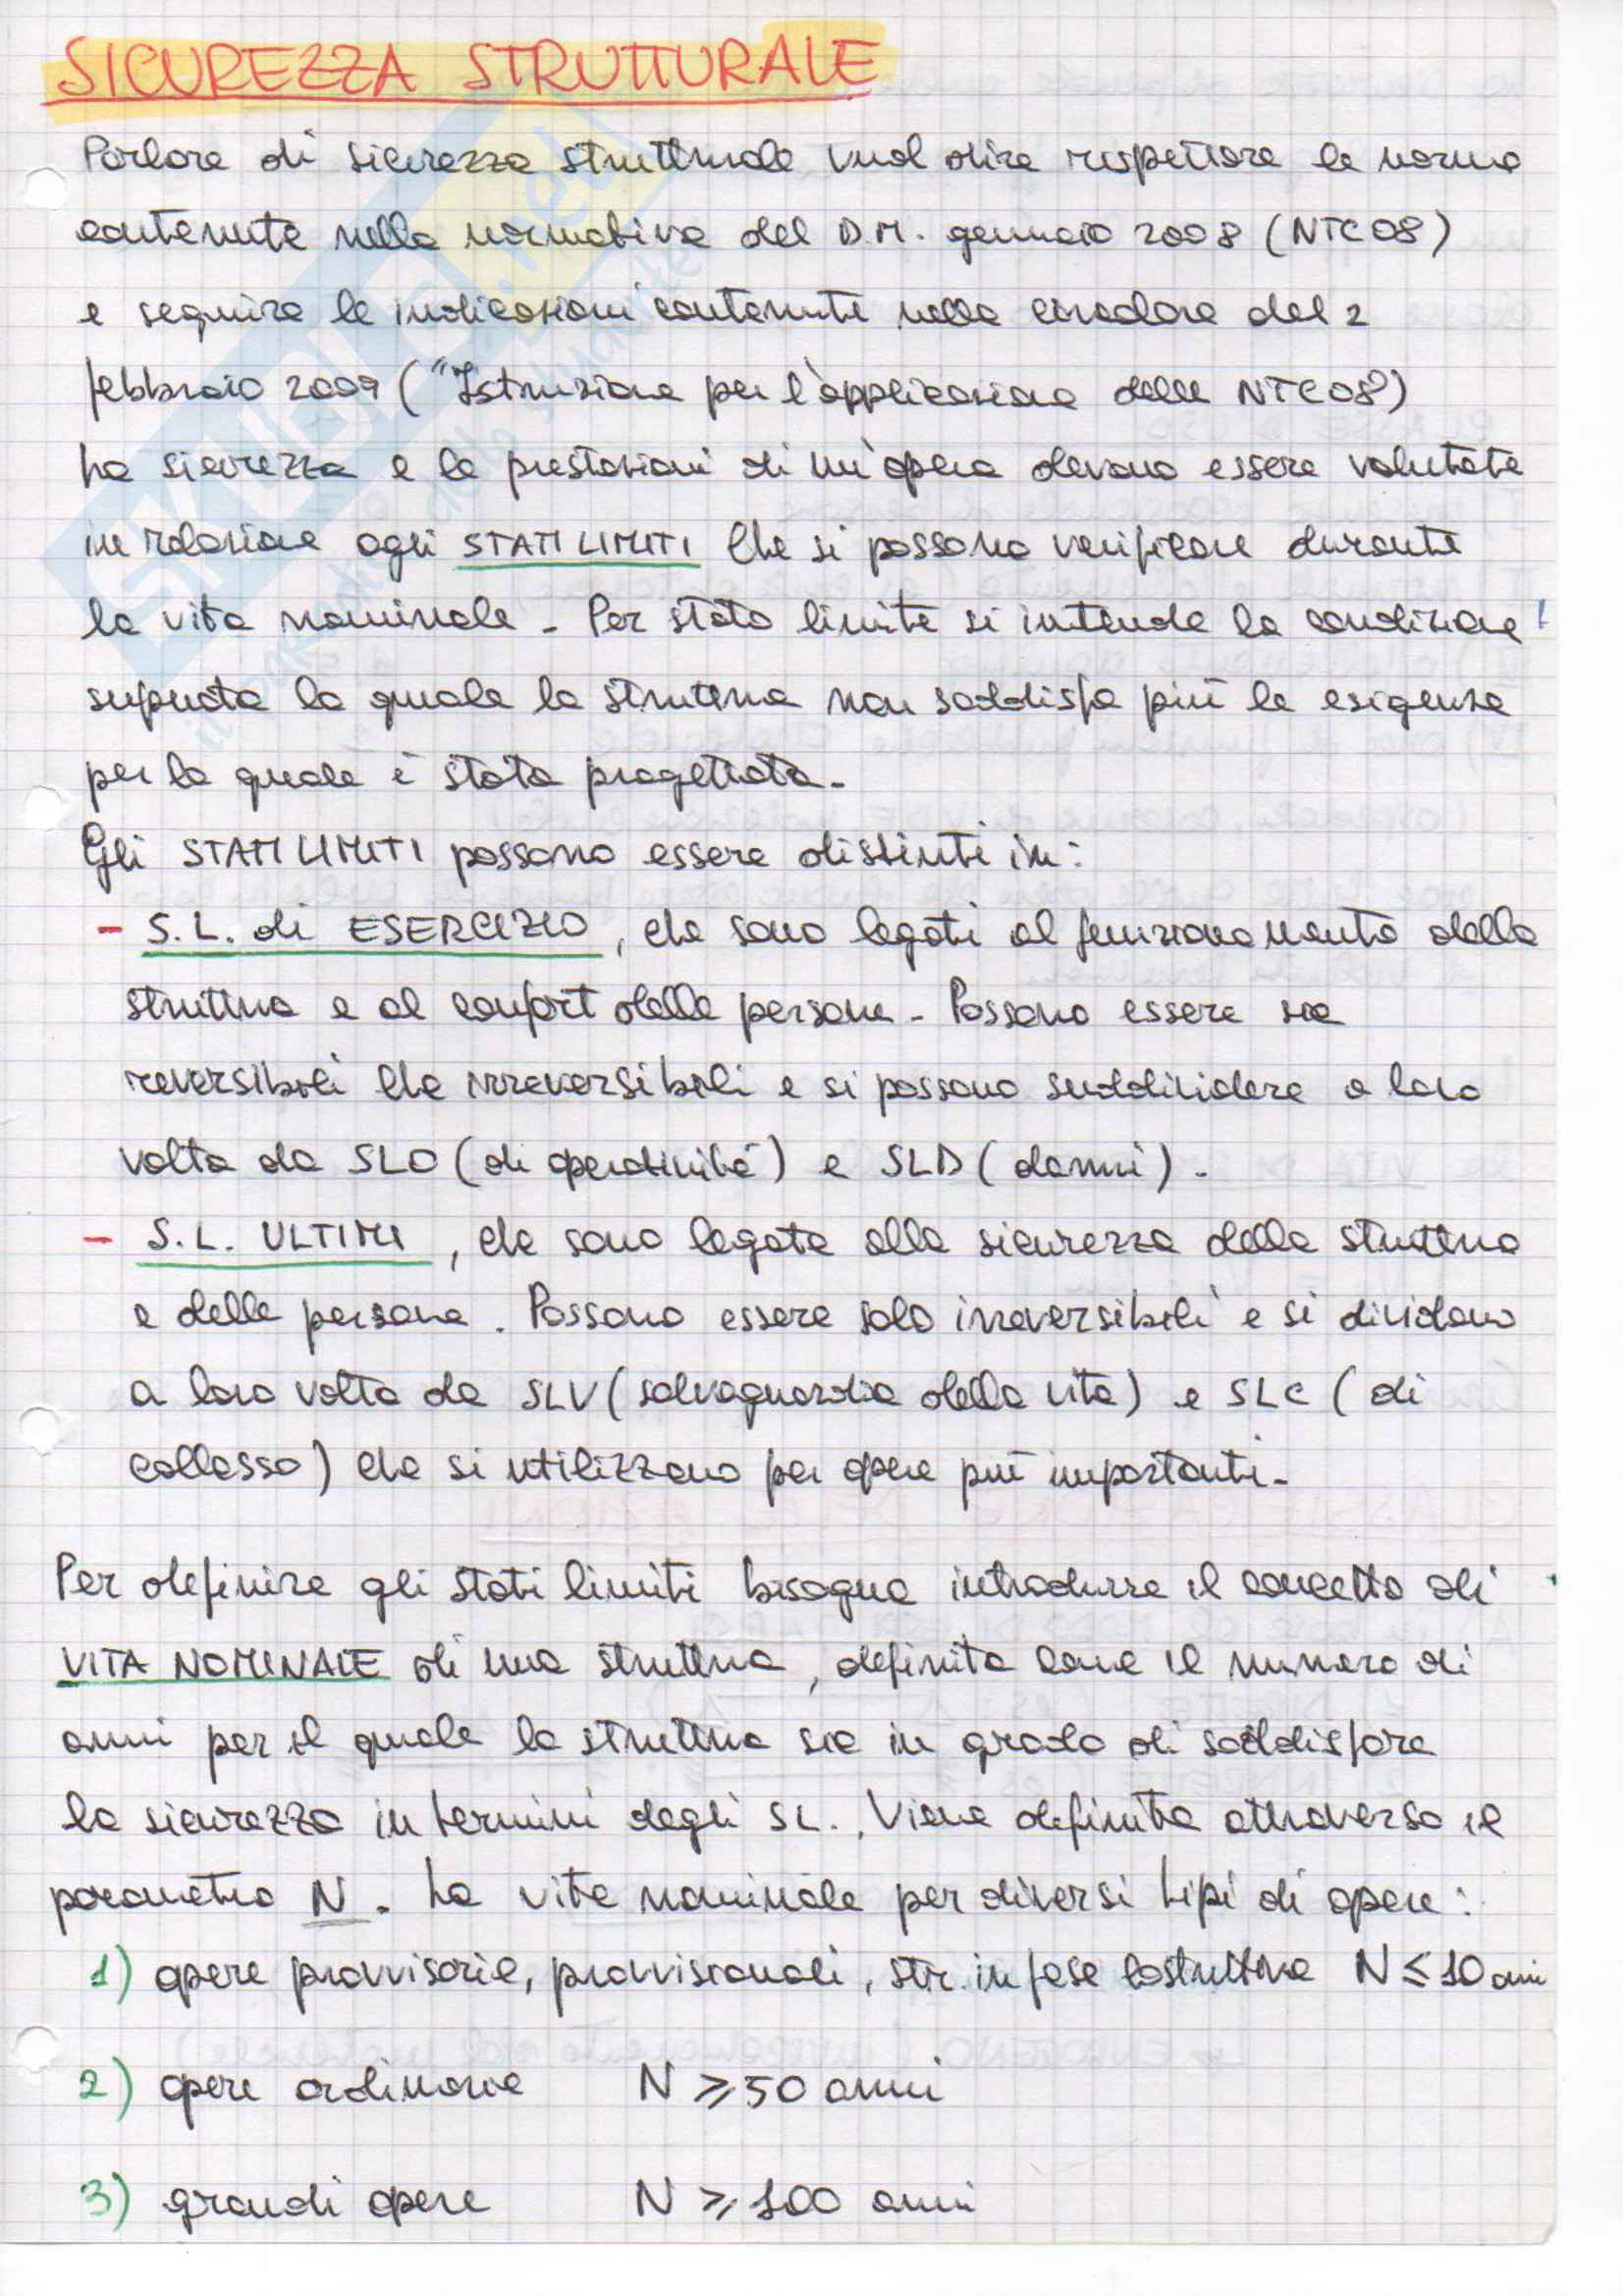 SICUREZZA STRUTTURALE
Parlare di sicurezza strutturale vuol dire rispettare le norme
contenute nella normativa del D.M. gennaio 2008 (NTC08)
e seguire le indicazioni contenute nella circolare del 2
febbraio 2009 ("Istruzione per l'applicazione delle NTC08)
La sicurezza e le prestazioni di un'opera devono essere valutate
in relazione agli STATI LIMITI che si possono verificare durante
la vita nominale. Per stato limite si intende la condizione
superata la quale la struttura non soddisfa più le esigenze
per la quale è stata progettata.
Gli STATI LIMITI possono essere distinti in:
- S.L. di ESERCIZIO, che sono legati al funzionamento della
struttura e al confort delle persone. Possono essere sia
reversibili che irreversibili e si possono suddividere a loro
volta da SLO (di operatività) e SLD (danni).
- S.L. ULTIMI, che sono legate alla sicurezza della struttura
e delle persone. Possono essere solo irreversibili e si dividono
a loro volta da SLV (salvaguardia della vita) e SLC (di
collasso) che si utilizzano per opere più importanti.
Per definire gli stati limiti bisogna introdurre il concetto di
VITA NOMINALE di una struttura, definita come il numero di
anni per il quale la struttura sia in grado di soddisfare
la sicurezza in termini degli SL.. Viene definita attraverso il
parametro N. La vita nominale per diversi tipi di opere:
1) opere provvisorie, provvisionali, str. in fase costruttiva N ≤ 10 anni
2) opere ordinarie N ≥ 50 anni
3) grandi opere N ≥ 100 anni